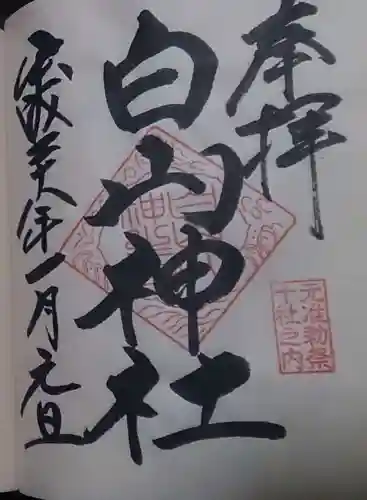 奉拝
白山神社
平成三十年一月元旦
元准勅祭
十社之内